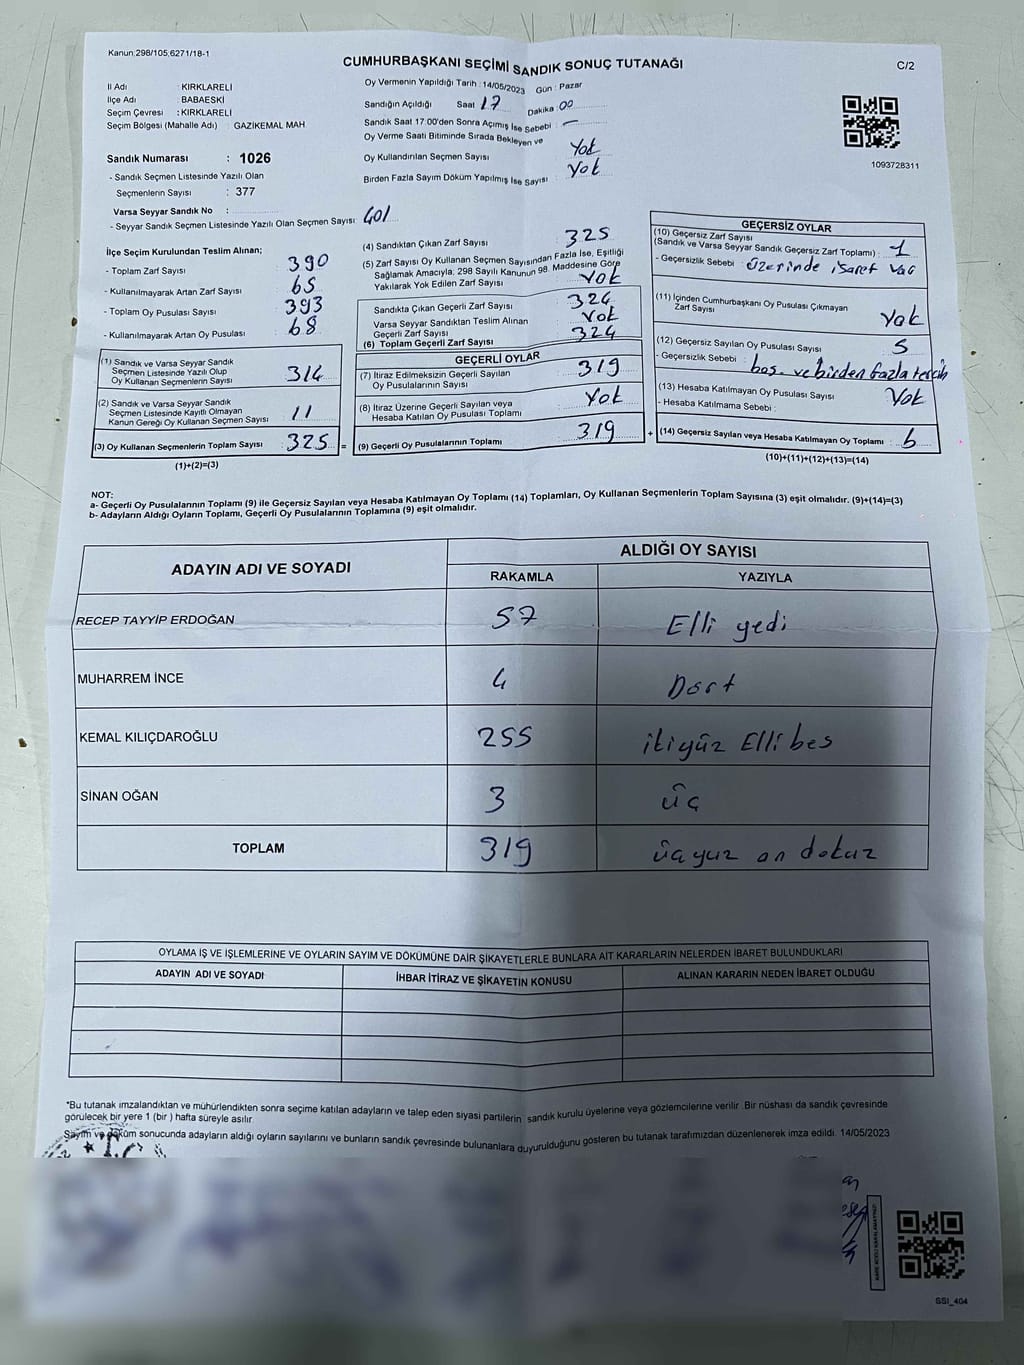 Kanun:298/105,6271/18-1
CUMHURBAŞKANI SEÇİMİ SANDIK SONUÇ TUTANAĞI
C/2
İl Adı : KIRKLARELİ
İlçe Adı : BABAESKİ
Seçim Çevresi : KIRKLARELİ
Seçim Bölgesi (Mahalle Adı) GAZİKEMAL MAH
Oy Vermenin Yapıldığı Tarih : 14/05/2023 Gün : Pazar
Sandığın Açıldığı Saat 17 Dakika : 00
Sandık Saat 17:00'den Sonra Açımış İse Sebebi : —
Oy Verme Saati Bitiminde Sırada Bekleyen ve
Oy Kullandırılan Seçmen Sayısı Yok
Birden Fazla Sayım Döküm Yapılmış İse Sayısı Yok
1093728311
Sandık Numarası : 1026
- Sandık Seçmen Listesinde Yazılı Olan
Seçmenlerin Sayısı : 377
Varsa Seyyar Sandık No :
- Seyyar Sandık Seçmen Listesinde Yazılı Olan Seçmen Sayısı: 401
İlçe Seçim Kurulundan Teslim Alınan;
- Toplam Zarf Sayısı 390
- Kullanılmayarak Artan Zarf Sayısı 65
- Toplam Oy Pusulası Sayısı : 393
- Kullanılmayarak Artan Oy Pusulası : 68
(1) Sandık ve Varsa Seyyar Sandık
Seçmen Listesinde Yazılı Olup
Oy Kullanan Seçmenlerin Sayısı 314
(2) Sandık ve Varsa Seyyar Sandık
Seçmen Listesinde Kayıtlı Olmayan
Kanun Gereği Oy Kullanan Seçmen Sayısı 11
(3) Oy Kullanan Seçmenlerin Toplam Sayısı 325 =
(1)+(2)=(3)
(4) Sandıktan Çıkan Zarf Sayısı 325
(5) Zarf Sayısı Oy Kullanan Seçmen Sayısından Fazla İse, Eşitliği
Sağlamak Amacıyla; 298 Sayılı Kanunun 98. Maddesine Göre
Yakılarak Yok Edilen Zarf Sayısı Yok
Sandıkta Çıkan Geçerli Zarf Sayısı 324
Varsa Seyyar Sandıktan Teslim Alınan
Geçerli Zarf Sayısı Yok
(6) Toplam Geçerli Zarf Sayısı 324
GEÇERLİ OYLAR
(7) İtiraz Edilmeksizin Geçerli Sayılan
Oy Pusulalarının Sayısı 319
(8) İtiraz Üzerine Geçerli Sayılan veya
Hesaba Katılan Oy Pusulası Toplamı Yok
(9) Geçerli Oy Pusulalarının Toplamı 319 +
GEÇERSİZ OYLAR
(10) Geçersiz Zarf Sayısı
(Sandık ve Varsa Seyyar Sandık Geçersiz Zarf Toplamı) : 1
- Geçersizlik Sebebi üzerinde işaret var
(11) İçinden Cumhurbaşkanı Oy Pusulası Çıkmayan
Zarf Sayısı Yok
(12) Geçersiz Sayılan Oy Pusulası Sayısı 5
- Geçersizlik Sebebi : boş ve birden fazla tercih
(13) Hesaba Katılmayan Oy Pusulası Sayısı Yok
- Hesaba Katılmama Sebebi :
(14) Geçersiz Sayılan veya Hesaba Katılmayan Oy Toplamı : 6
(10)+(11)+(12)+(13)=(14)
NOT:
a- Geçerli Oy Pusulalarının Toplamı (9) ile Geçersiz Sayılan veya Hesaba Katılmayan Oy Toplamı (14) Toplamları, Oy Kullanan Seçmenlerin Toplam Sayısına (3) eşit olmalıdır. (9)+(14)=(3)
b- Adayların Aldığı Oyların Toplamı, Geçerli Oy Pusulalarının Toplamına (9) eşit olmalıdır.
ADAYIN ADI VE SOYADI
ALDIĞI OY SAYISI
RAKAMLA YAZIYLA
RECEP TAYYİP ERDOĞAN 57 Elli yedi
MUHARREM İNCE 4 Dört
KEMAL KILIÇDAROĞLU 255 ikiyüz Elli beş
SİNAN OĞAN 3 üç
TOPLAM 319 üçyuz on dokuz
OYLAMA İŞ VE İŞLEMLERİNE VE OYLARIN SAYIM VE DÖKÜMÜNE DAİR ŞİKAYETLERLE BUNLARA AİT KARARLARIN NELERDEN İBARET BULUNDUKLARI
ADAYIN ADI VE SOYADI İHBAR İTİRAZ VE ŞİKAYETİN KONUSU ALINAN KARARIN NEDEN İBARET OLDUĞU
*Bu tutanak imzalandıktan ve mühürlendikten sonra seçime katılan adayların ve talep eden siyasi partilerin sandık kurulu üyelerine veya gözlemcilerine verilir. Bir nüshası da sandık çevresinde
görülecek bir yere 1 (bir) hafta süreyle asılır.
Sayım ve döküm sonucunda adayların aldığı oyların sayılarını ve bunların sandık çevresinde bulunanlara duyurulduğunu gösteren bu tutanak tarafımızdan düzenlenerek imza edildi. 14/05/2023
SSI_404